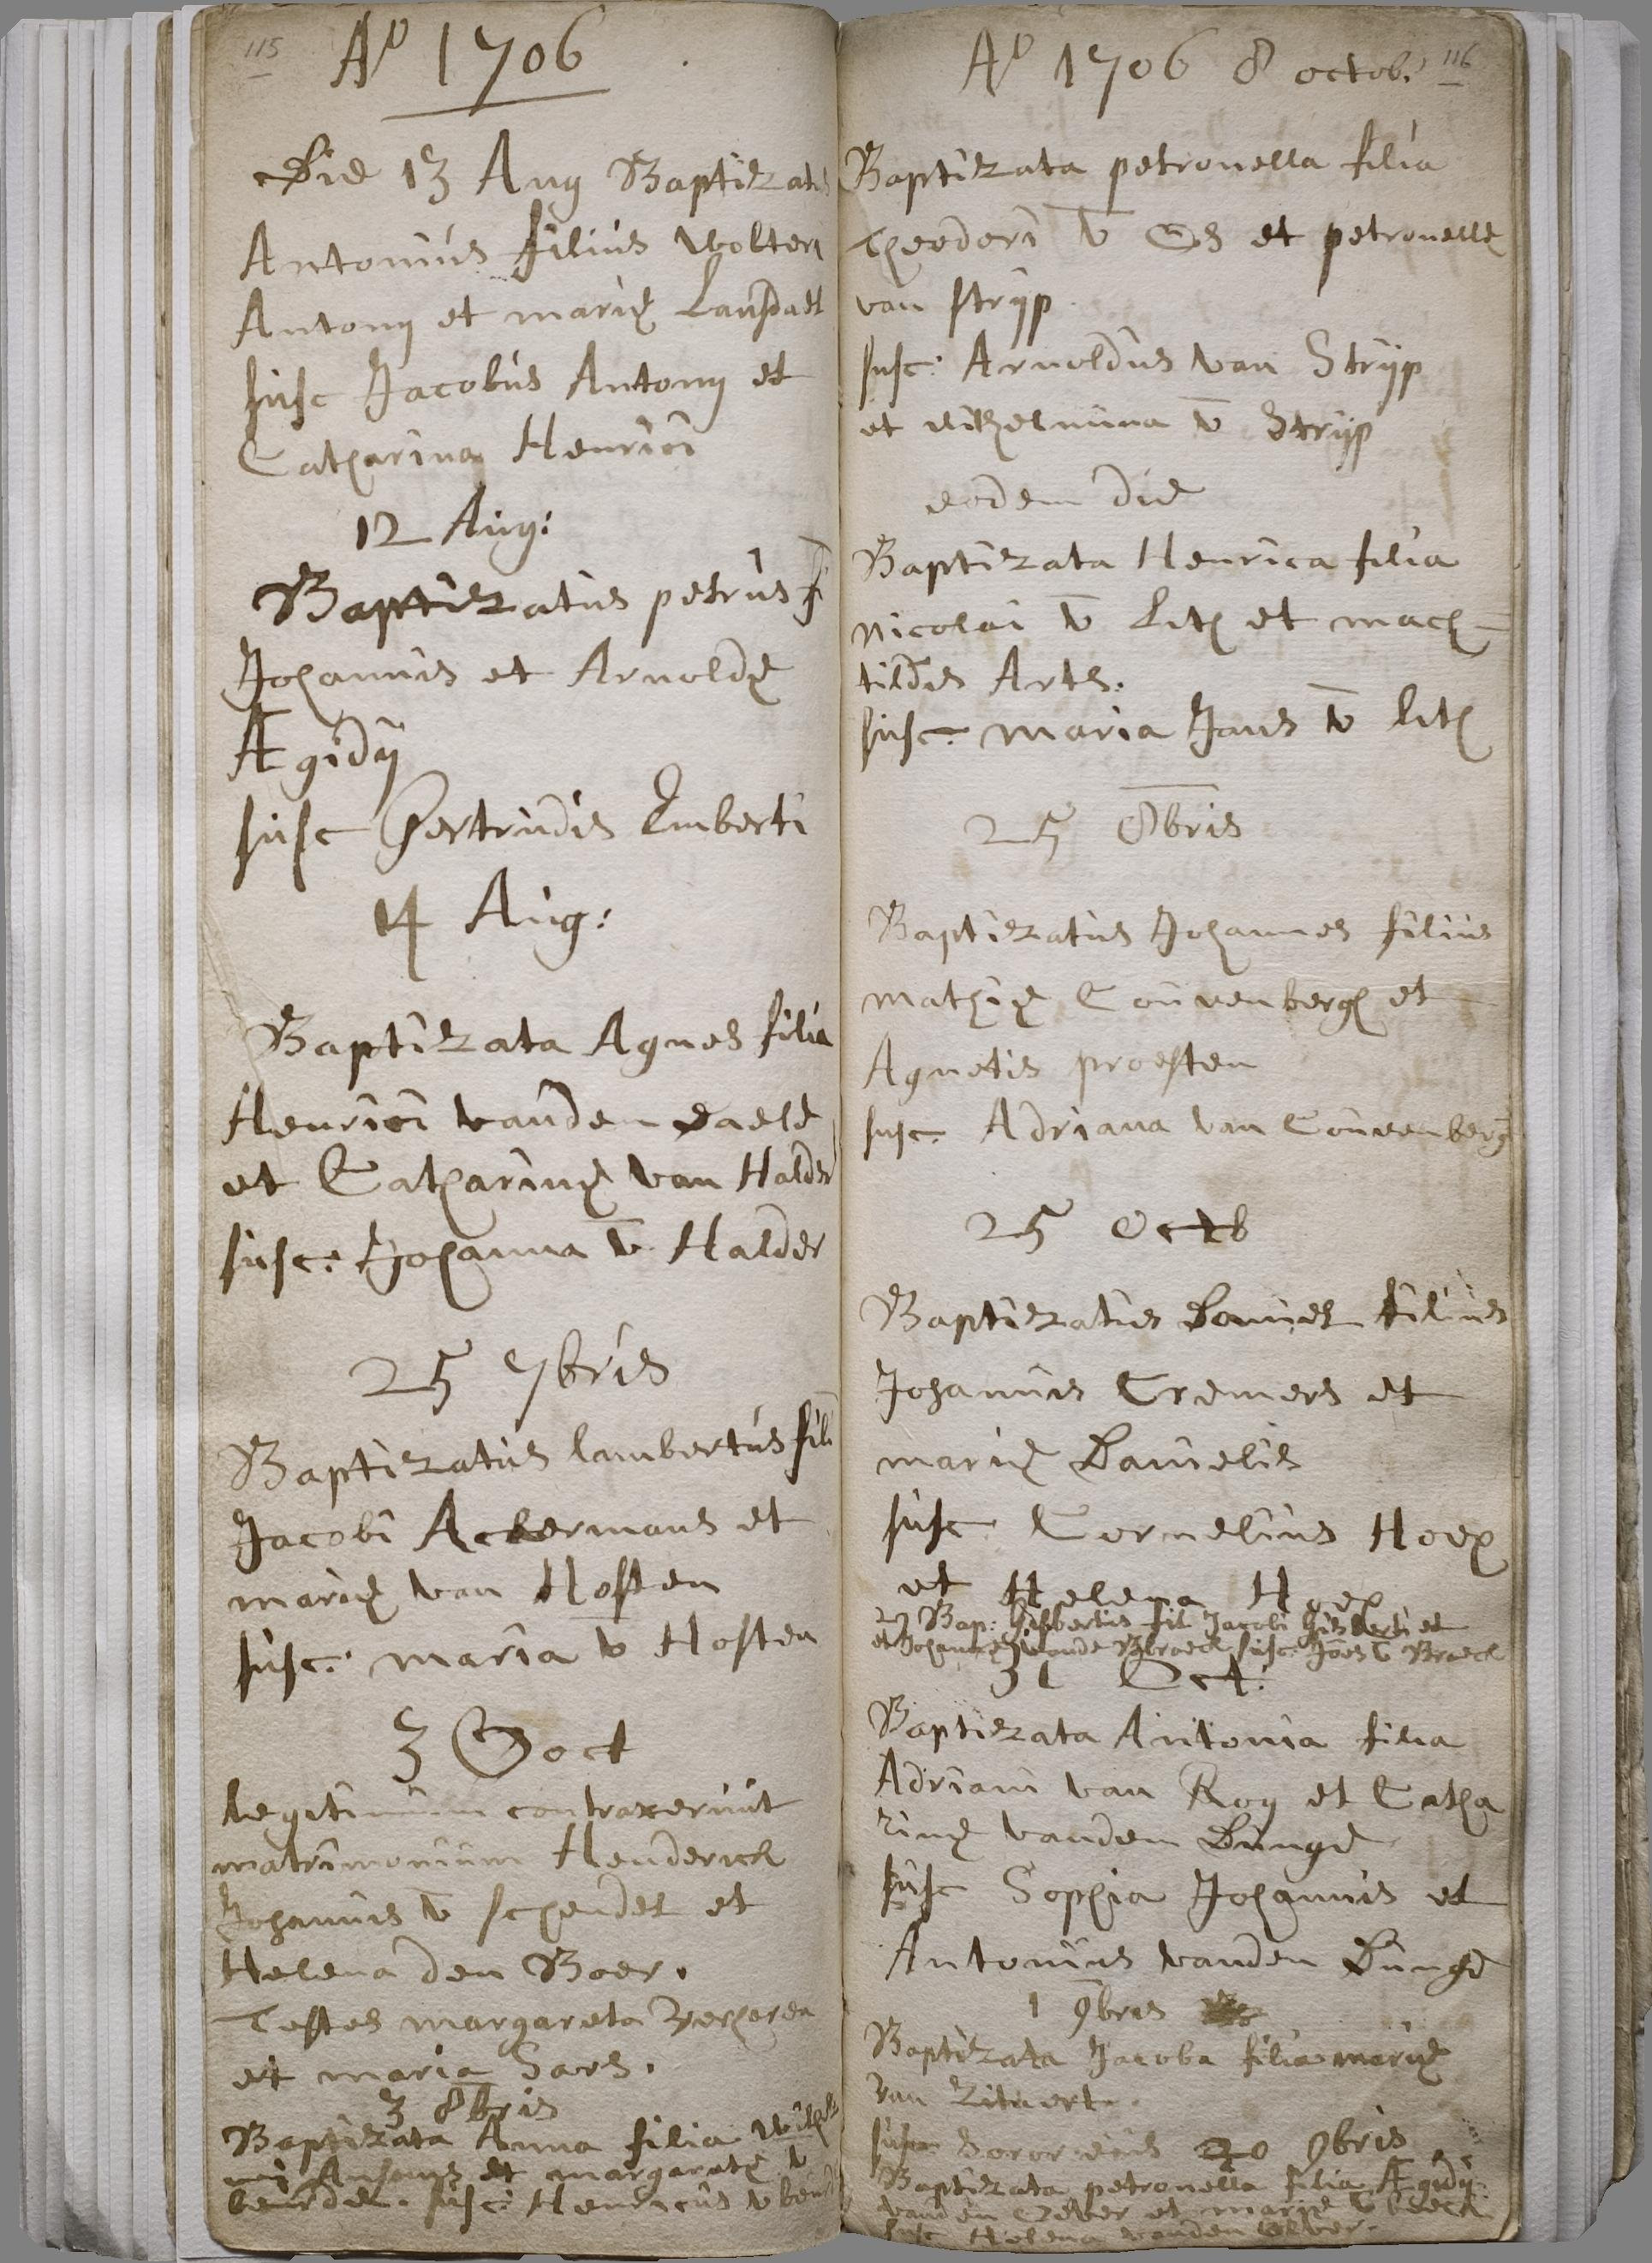 115
Ao 1706
Die 13 Aug Baptizatus
Antonius filius Wolteri
Antony et mariæ Lansdael
susc Jacobus Antony et
Catharina Henrici
12 Aug:
Baptizatus petrus f
Johannis et Arnoldæ
Ægidij
susc Gertrudis Emberti
14 Aug:
Baptizata Agnes filia
Henrici vanden Daele
et Catharinæ van Halder
susc: Johanna v̄ Halder
25 7bris
Baptizatus lambertus fili
Jacobi Ackermans et
mariæ van Hosten
susc: maria v̄ Hosten
3 oct
legitimum contraxerunt
matrimonium Henderick
Johannis v̄ schendel et
Helena den Boer.
Testes margareta
et maria Sars.
3 8bris
Baptizata Anna filia
et margaretæ v
beurden. susc: Henricus v
116
Ao 1706 8 octob:
Baptizata petronella filia
Theodori v̄ Os et petronellæ
van strijp
susc: Arnoldus van Strijp
et wilhelmina v̄ Strijp
eodem die
Baptizata Henrica filia
Nicolai v̄ Lith et mach-
tildis Arts.
susc: maria Jans v̄ lith
25 8bris
Baptizatus Johannes filius
mathiæ Couvenbergh et
Agnetis proesten
susc: Adriana van Couvenbergh
25 Octb
Baptizatus Daniel filius
Johannis Cremers et
mariæ Danielis
susc Cornelius Hoex
et Helena Hoex
27 Bap: Gisbertus fil Jacobi Gisberti et
et Johannæ vande Broeck susc: Joes v̄ Broeck
31 Oct:
Baptizata Antonia filia
Adriani van Roy et Catha
rinæ vanden Dunge
susc Sophia Johannis et
Antonius vanden Dunge
1 9bris
Baptizata Jacoba filia mariæ
van Litaert.
susc soror eius 20 9bris
Baptizata petronella filia Ægidij
vanden Oever et mariæ v̄
susc Helena vanden Oever.